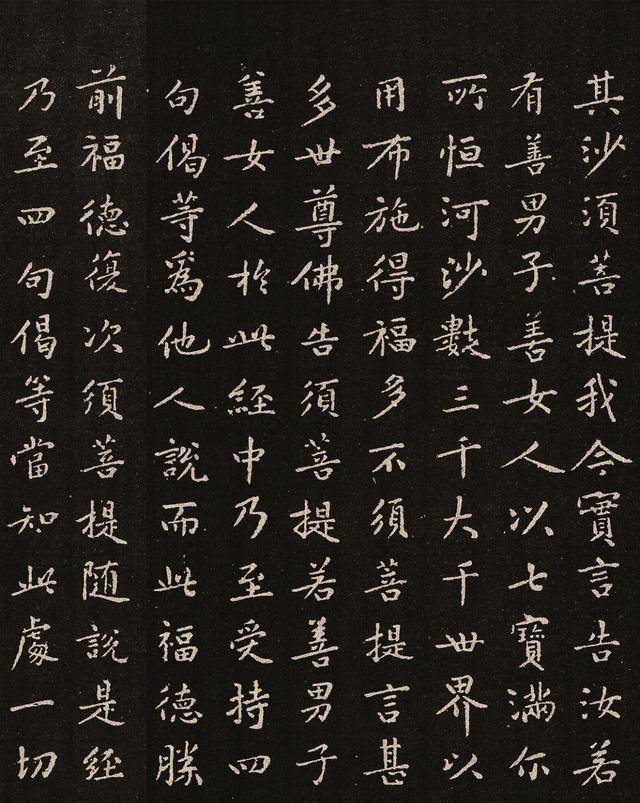 其沙須菩提我今實言告汝若
有善男子善女人以七寶滿尔
所恒河沙數三千大千世界以
用布施得福多不須菩提言甚
多世尊佛告須菩提若善男子
善女人於此經中乃至受持四
句偈等爲他人說而此福德勝
前福德復次須菩提随說是經
乃至四句偈等當知此處一切